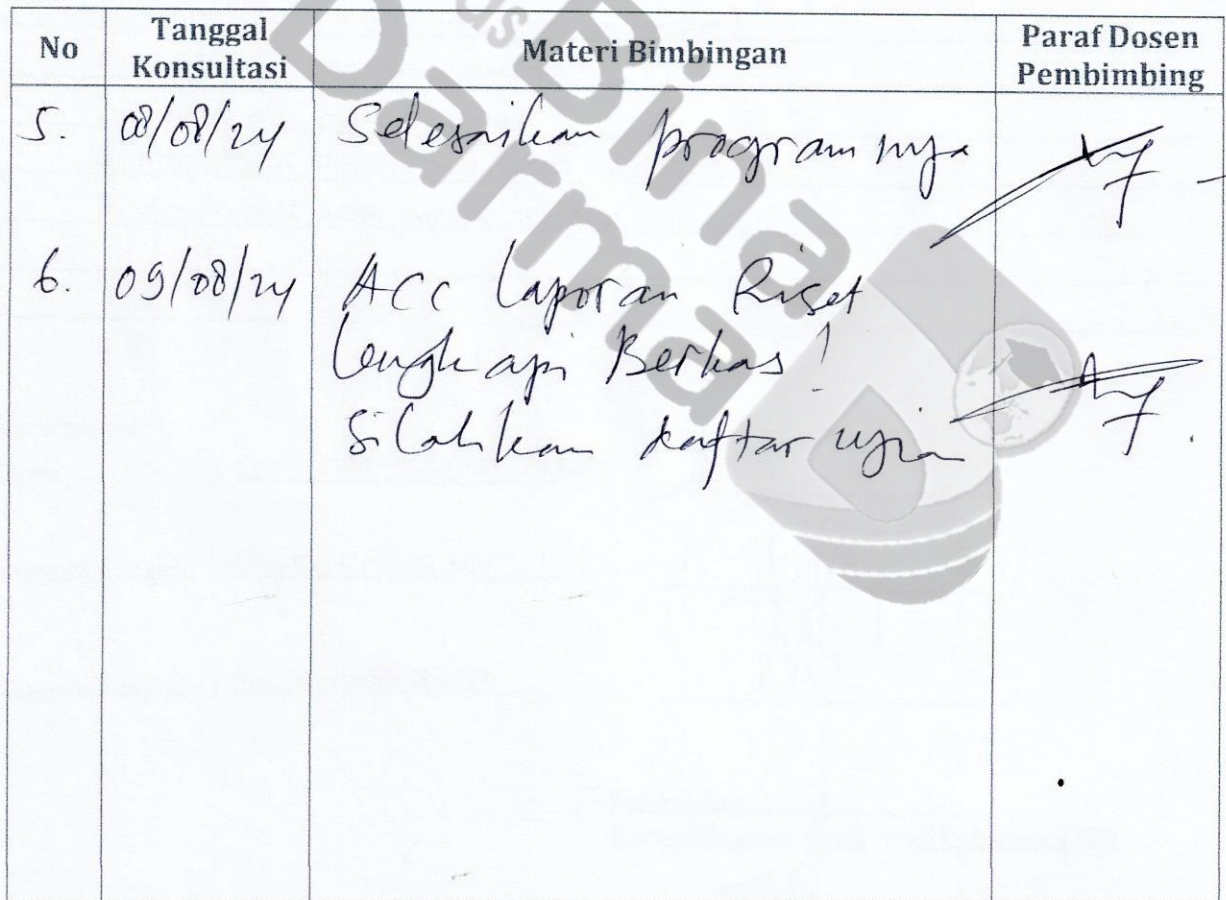 No
Tanggal Konsultasi
Materi Bimbingan
Paraf Dosen Pembimbing
5. 08/08/24 Selesaikan programnya
6. 09/08/24 ACC Laporan Riset
Lengkapi Berkas!
Silahkan daftar ujian
us Bina
Darma